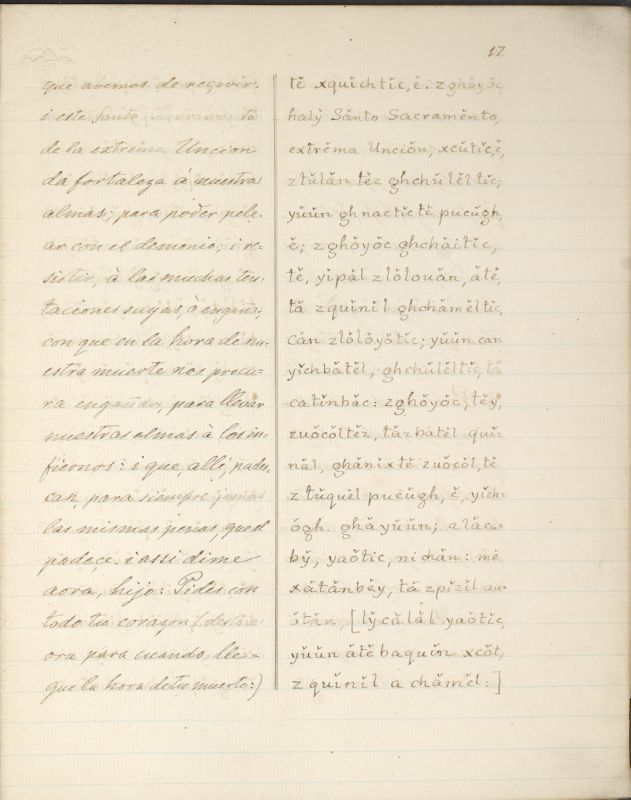 17
que avemos de reçevir.
i este Santo Sacramento
de la extrema Uncion
da fortaleza â nuestra
almas; para poder pele-
ar con el demonio; i re-
sistir, â las muchas ten-
taciones suyas, ô engaños,
con que en la hora de nu-
estra muerte nos procu-
ra engañar, para llevar
nuestras almas â los in-
fiernos: i que, alli, pades-
can, para siempre jamas
las mismas penas, que el
padeçe. i assi dime
aora, hijo: Pides con
todo tu corazon (desde a-
ora para cuando lle-
gue la hora de tu muerte:)
tĕ xquĭchtĭc, ĕ. zghŏyŏc
halў Sănto Sacramĕnto,
extrĕma Unciŏn, xcŭtĭc, ĕ,
ztŭlăn tĕz ghchŭlĕl tĭc;
yŭŭn ghnactĭc tĕ pucŭgh,
ĕ; zghŏyŏc ghchăitĭc,
tĕ, yĭpăl zlŏlouăn, ătĕ,
tă zquĭnĭl ghchămĕltĭc,
căn zlŏlŏyŏtĭc; yŭŭn can
yĭchbătĕl, ghchŭlĕltĭc, tă
catĭnbăc: zghŏyŏc, tĕy,
zuŏcŏltĕz, tăzbatĕl quĭ-
năl, ghănĭxtĕ zuŏcŏl, tĕ
ztŭquĕl pucŭgh, ĕ, yĭch-
ŏgh. ghăyŭŭn; alăca-
bў, yaŏtĭc, nichăn: mĕ
xătănbĕy, tă zpĭzĭl au-
ŏtăn, [lўcălăl yaŏtĭc,
yŭŭn ătĕ baquĭn xcŏt,
zquĭnĭl a chămĕl:]